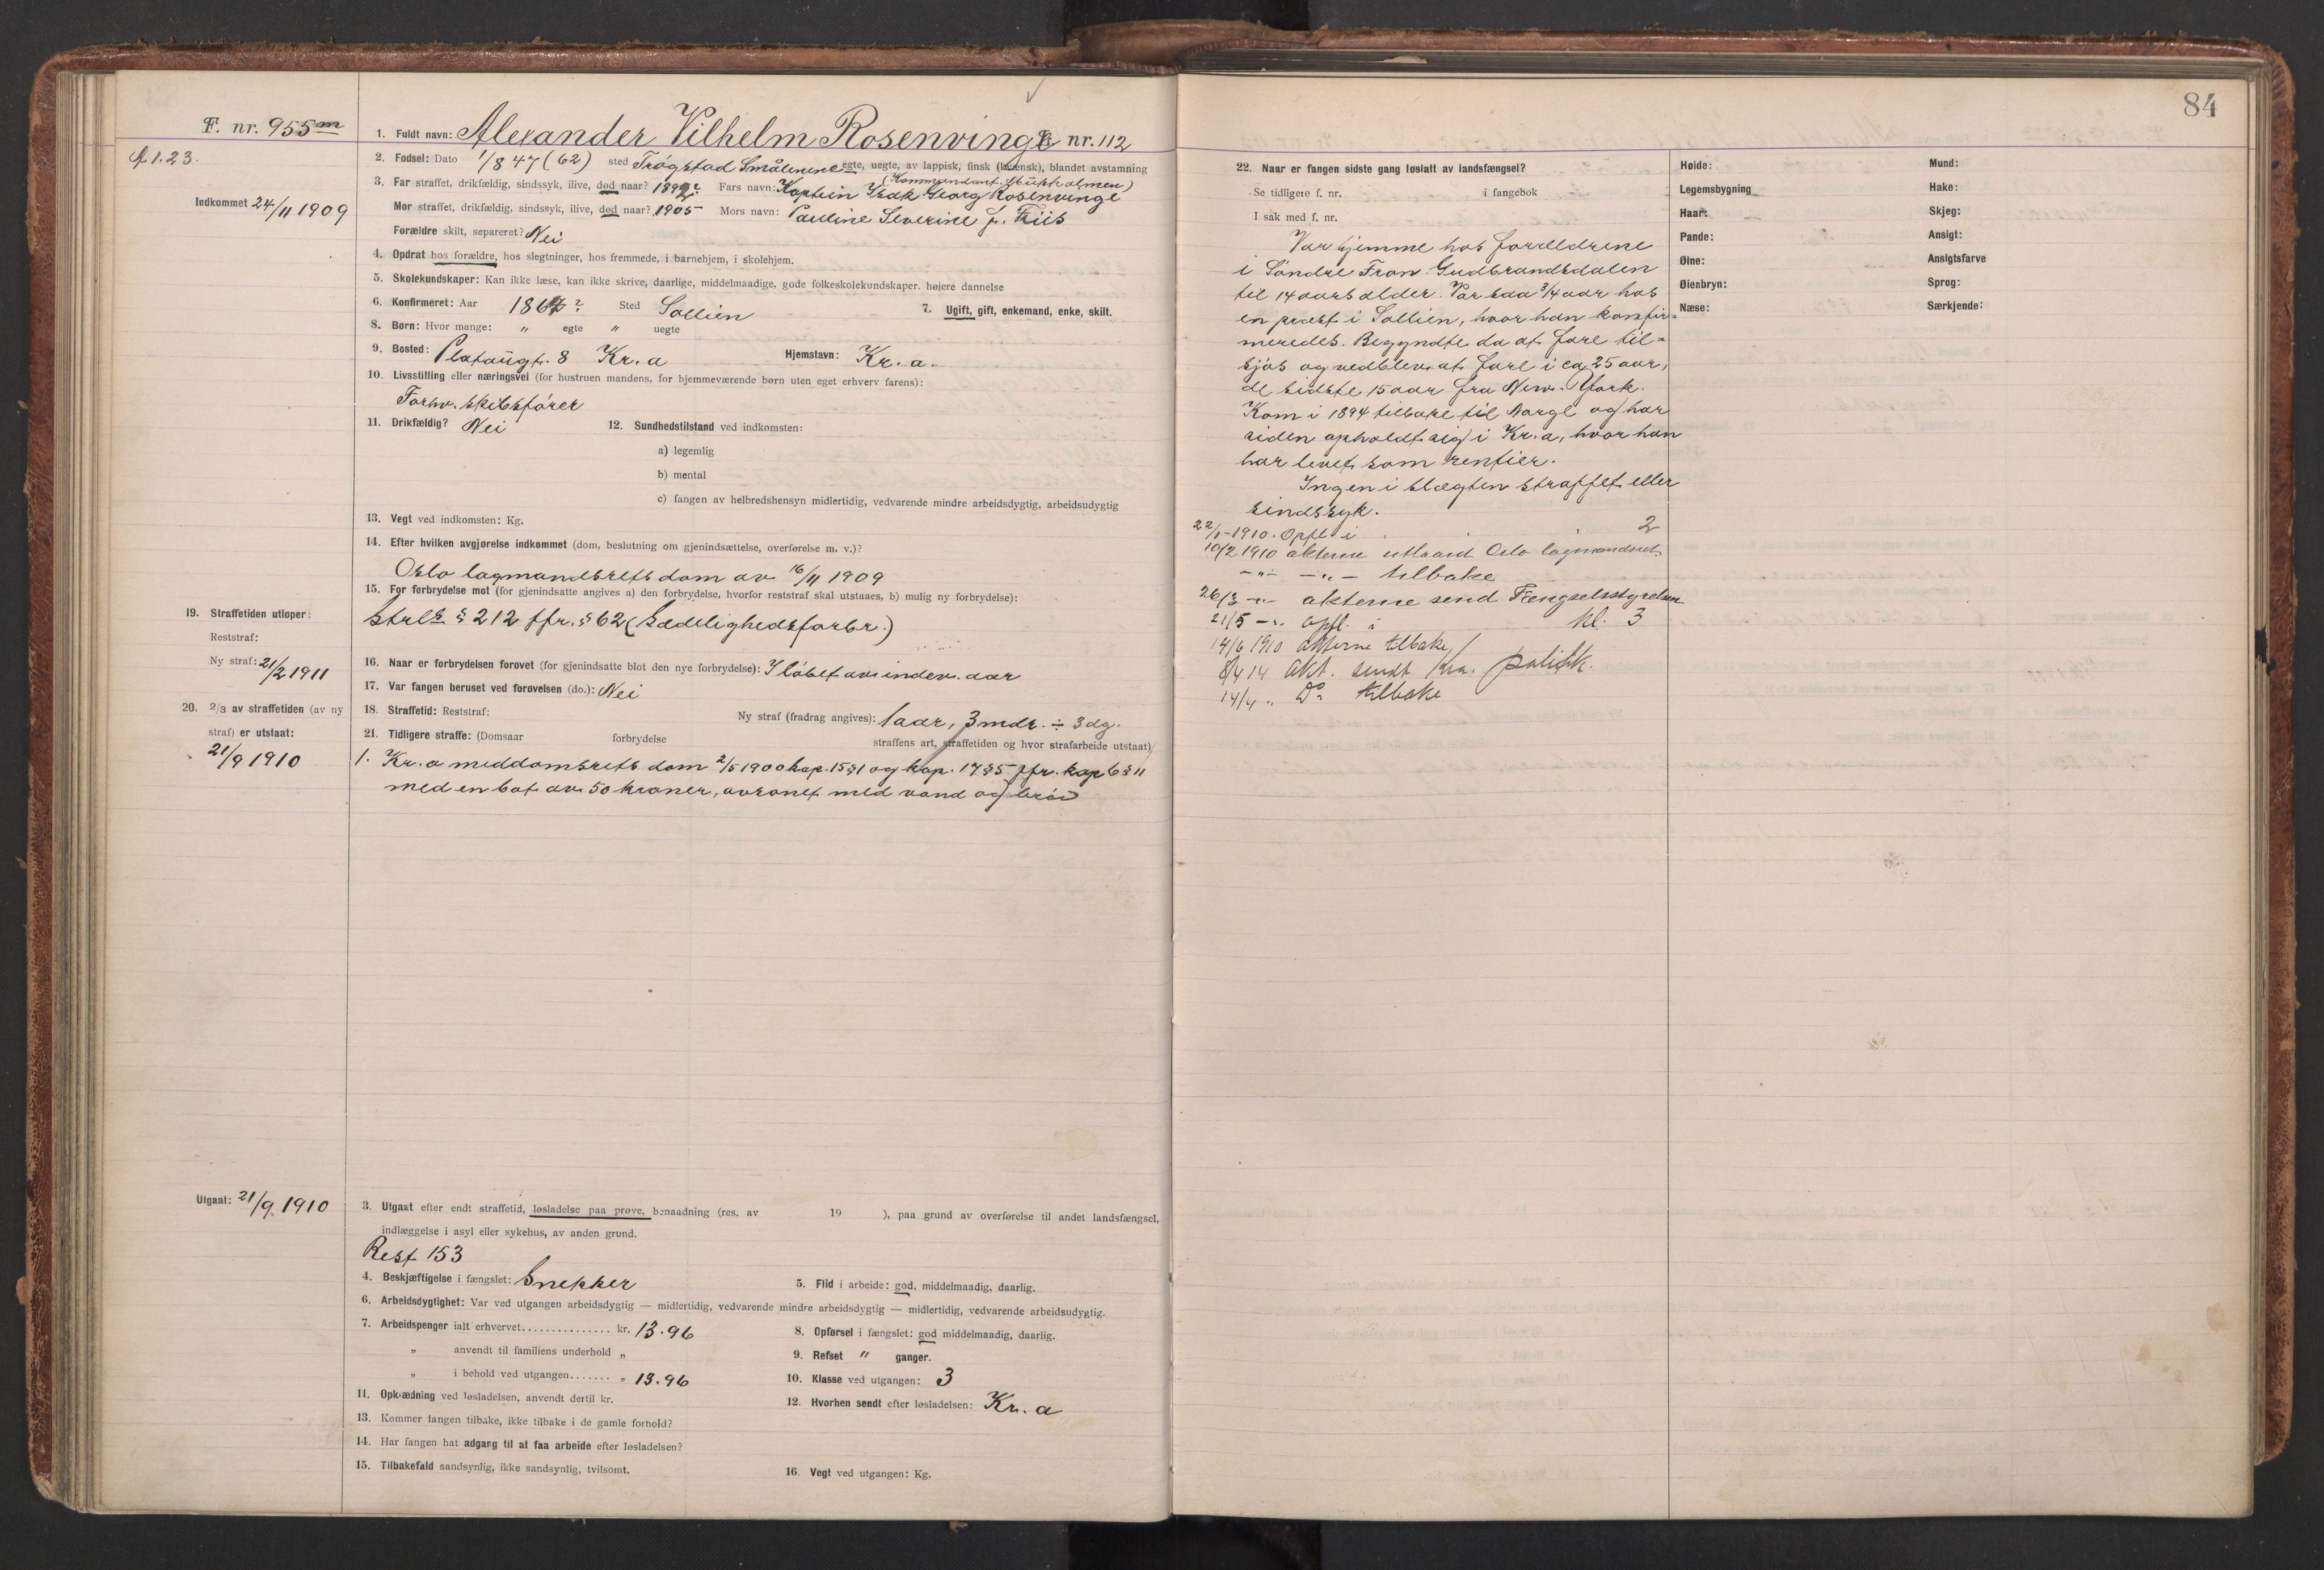 84
F. nr. 955 m
1. Fuldt navn: Alexander Vilhelm Rosenvinge nr. 112
A 1. 23.
2. Fødsel: Dato 1/8 47 (62) sted Trøgstad Smålenene egte, uegte, av lappisk, finsk (kvensk), blandet avstamning
Indkommet 24/11 1909
3. Far straffet, drikfældig, sindssyk, ilive, død naar? Fars navn: Kaptein Isak Georg Rosenvinge
Mor straffet, drikfældig, sindssyk, ilive, død naar? 1905 Mors navn: Pauline Severine f. Friis
Forældre skilt, separeret? Nei
4. Opdrat hos forældre, hos slegtninger, hos fremmede, i barnehjem, i skolehjem.
5. Skolekundskaper: Kan ikke læse, kan ikke skrive, daarlige, middelmaadige, gode folkeskolekundskaper. høiere dannelse
6. Konfirmeret: Aar Sted Sollien 7. Ugift, gift, enkemand, enke, skilt.
8. Børn: Hvor mange: " egte " uegte
9. Bosted: 8 Kr.a Hjemstavn: Kr.a.
10. Livsstilling eller næringsvei (for hustruen mandens, for hjemmeværende børn uten eget erhverv farens):
Forhv. skibsfører
11. Drikfældig? Nei 12. Sundhedstilstand ved indkomsten:
a) legemlig
b) mental
c) fangen av helbredshensyn midlertidig, vedvarende mindre arbeidsdygtig, arbeidsudygtig
13. Vegt ved indkomsten: Kg.
14. Efter hvilken avgjørelse indkommet (dom, beslutning om gjenindsættelse, overførelse m. v.)?
Oslo lagmandsrets dom av 16/11 1909
15. For forbrydelse mot (for gjenindsatte angives a) den forbrydelse, hvorfor reststraf skal utstaaes, b) mulig ny forbrydelse):
19. Straffetiden utløper:
Strl. § 212 jfr. § 62 (Sædelighedsforbr.)
Reststraf:
Ny straf: 21/2 1911
16. Naar er forbrydelsen forøvet (for gjenindsatte blot den nye forbrydelse): I løbet av indev. aar
17. Var fangen beruset ved forøvelsen (do.): Nei
20. 2/3 av straffetiden (av ny
straf) er utstaat:
21/9 1910
18. Straffetid: Reststraf: Ny straf (fradrag angives): 1 aar, 3 mdr. ÷ 3 dg.
21. Tidligere straffe: (Domsaar forbrydelse straffens art, straffetiden og hvor strafarbeide utstaat)
1. Kr.a meddomsrets dom 2/5 1900 kap. 15 § 1 og kap. 17 § 5 jfr. kap 6 § 11
med en bot av 50 kroner, avsonet med vand og brød
Utgaat: 21/9 1910
3. Utgaat efter endt straffetid, løsladelse paa prøve, benaadning (res. av 19 ), paa grund av overførelse til andet landsfængsel,
indlæggelse i asyl eller sykehus, av anden grund.
Rest 153
4. Beskjæftigelse i fængslet: Snekker 5. Flid i arbeide: god, middelmaadig, daarlig.
6. Arbeidsdygtighet: Var ved utgangen arbeidsdygtig — midlertidig, vedvarende mindre arbeidsdygtig — midlertidig, vedvarende arbeidsudygtig.
7. Arbeidspenger ialt erhvervet............... kr. 13.96 8. Opførsel i fængslet: god middelmaadig, daarlig.
" anvendt til familiens underhold " 9. Refset " ganger.
" i behold ved utgangen....... " 13.96 10. Klasse ved utgangen: 3
11. Opklædning ved løsladelsen, anvendt dertil kr. 12. Hvorhen sendt efter løsladelsen: Kr.a
13. Kommer fangen tilbake, ikke tilbake i de gamle forhold?
14. Har fangen hat adgang til at faa arbeide efter løsladelsen?
15. Tilbakefald sandsynlig, ikke sandsynlig, tvilsomt. 16. Vegt ved utgangen: Kg.
22. Naar er fangen sidste gang løslatt av landsfængsel?
Se tidligere f. nr. i fangebok
I sak med f. nr.
Var hjemme hos forældrene
i Söndre Fron Gudbrandsdalen
til 14 aars alder. Var saa 3/4 aar hos
en prest i Sollien, hvor han konfir=
meredes. Begyndte da at fare til=
sjøs og vedblev at fare i ca 25 aar,
de sidste 15 aar fra New-York.
Kom i 1894 tilbake til Norge og har
siden opholdt sig i Kr.a, hvor han
har levet som rentier.
Ingen i slægten straffet eller
sindssyk.
22/1-1910. Opfl i 2
10/2 1910 akterne utlaant Oslo lagmandsret.
-"- -"- tilbake
26/3 -"- akterne send Fængselsstyrelsen
21/5 -"- Opfl. i kl. 3
14/6 1910 akterne tilbake
8/4 14 akt. sendt Kra. politik.
14/4 " Do tilbake
Høide: Mund:
Legemsbygning Hake:
Haar: Skjeg:
Pande: Ansigt:
Øine: Ansigtsfarve
Øienbryn: Sprog:
Næse: Særkjende: